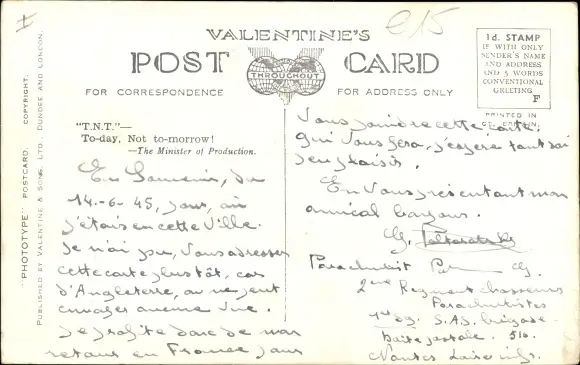 VALENTINE'S
POST CARD
THROUGHOUT
FOR CORRESPONDENCE
FOR ADDRESS ONLY
1d. STAMP
IF WITH ONLY
SENDER'S NAME
AND ADDRESS
AND 5 WORDS
CONVENTIONAL
GREETING
F
PRINTED IN
"PHOTOTYPE" POSTCARD. COPYRIGHT.
PUBLISHED BY VALENTINE & SONS, LTD. DUNDEE AND LONDON.
"T.N.T."—
To-day, Not to-morrow!
—The Minister of Production.
En Souvenir, du
14-6-45, jour, où
j'étais en cette Ville.
Je n'ai pu, Vous adresser
cette carte plus tôt, car
d'Angleterre, on ne peut
envoyer aucune Vue.
Je profite donc de mon
retour en France pour
Vous joindre cette carte.
qui Vous fera, j'espère tout
plaisir.
En Vous présentant mon
amical bonjour.
G.
Parachutiste G.
2ème Régiment chasseurs
Parachutistes
S.A.S. brigade.
boite postale. 516.
Nantes Loire infr.